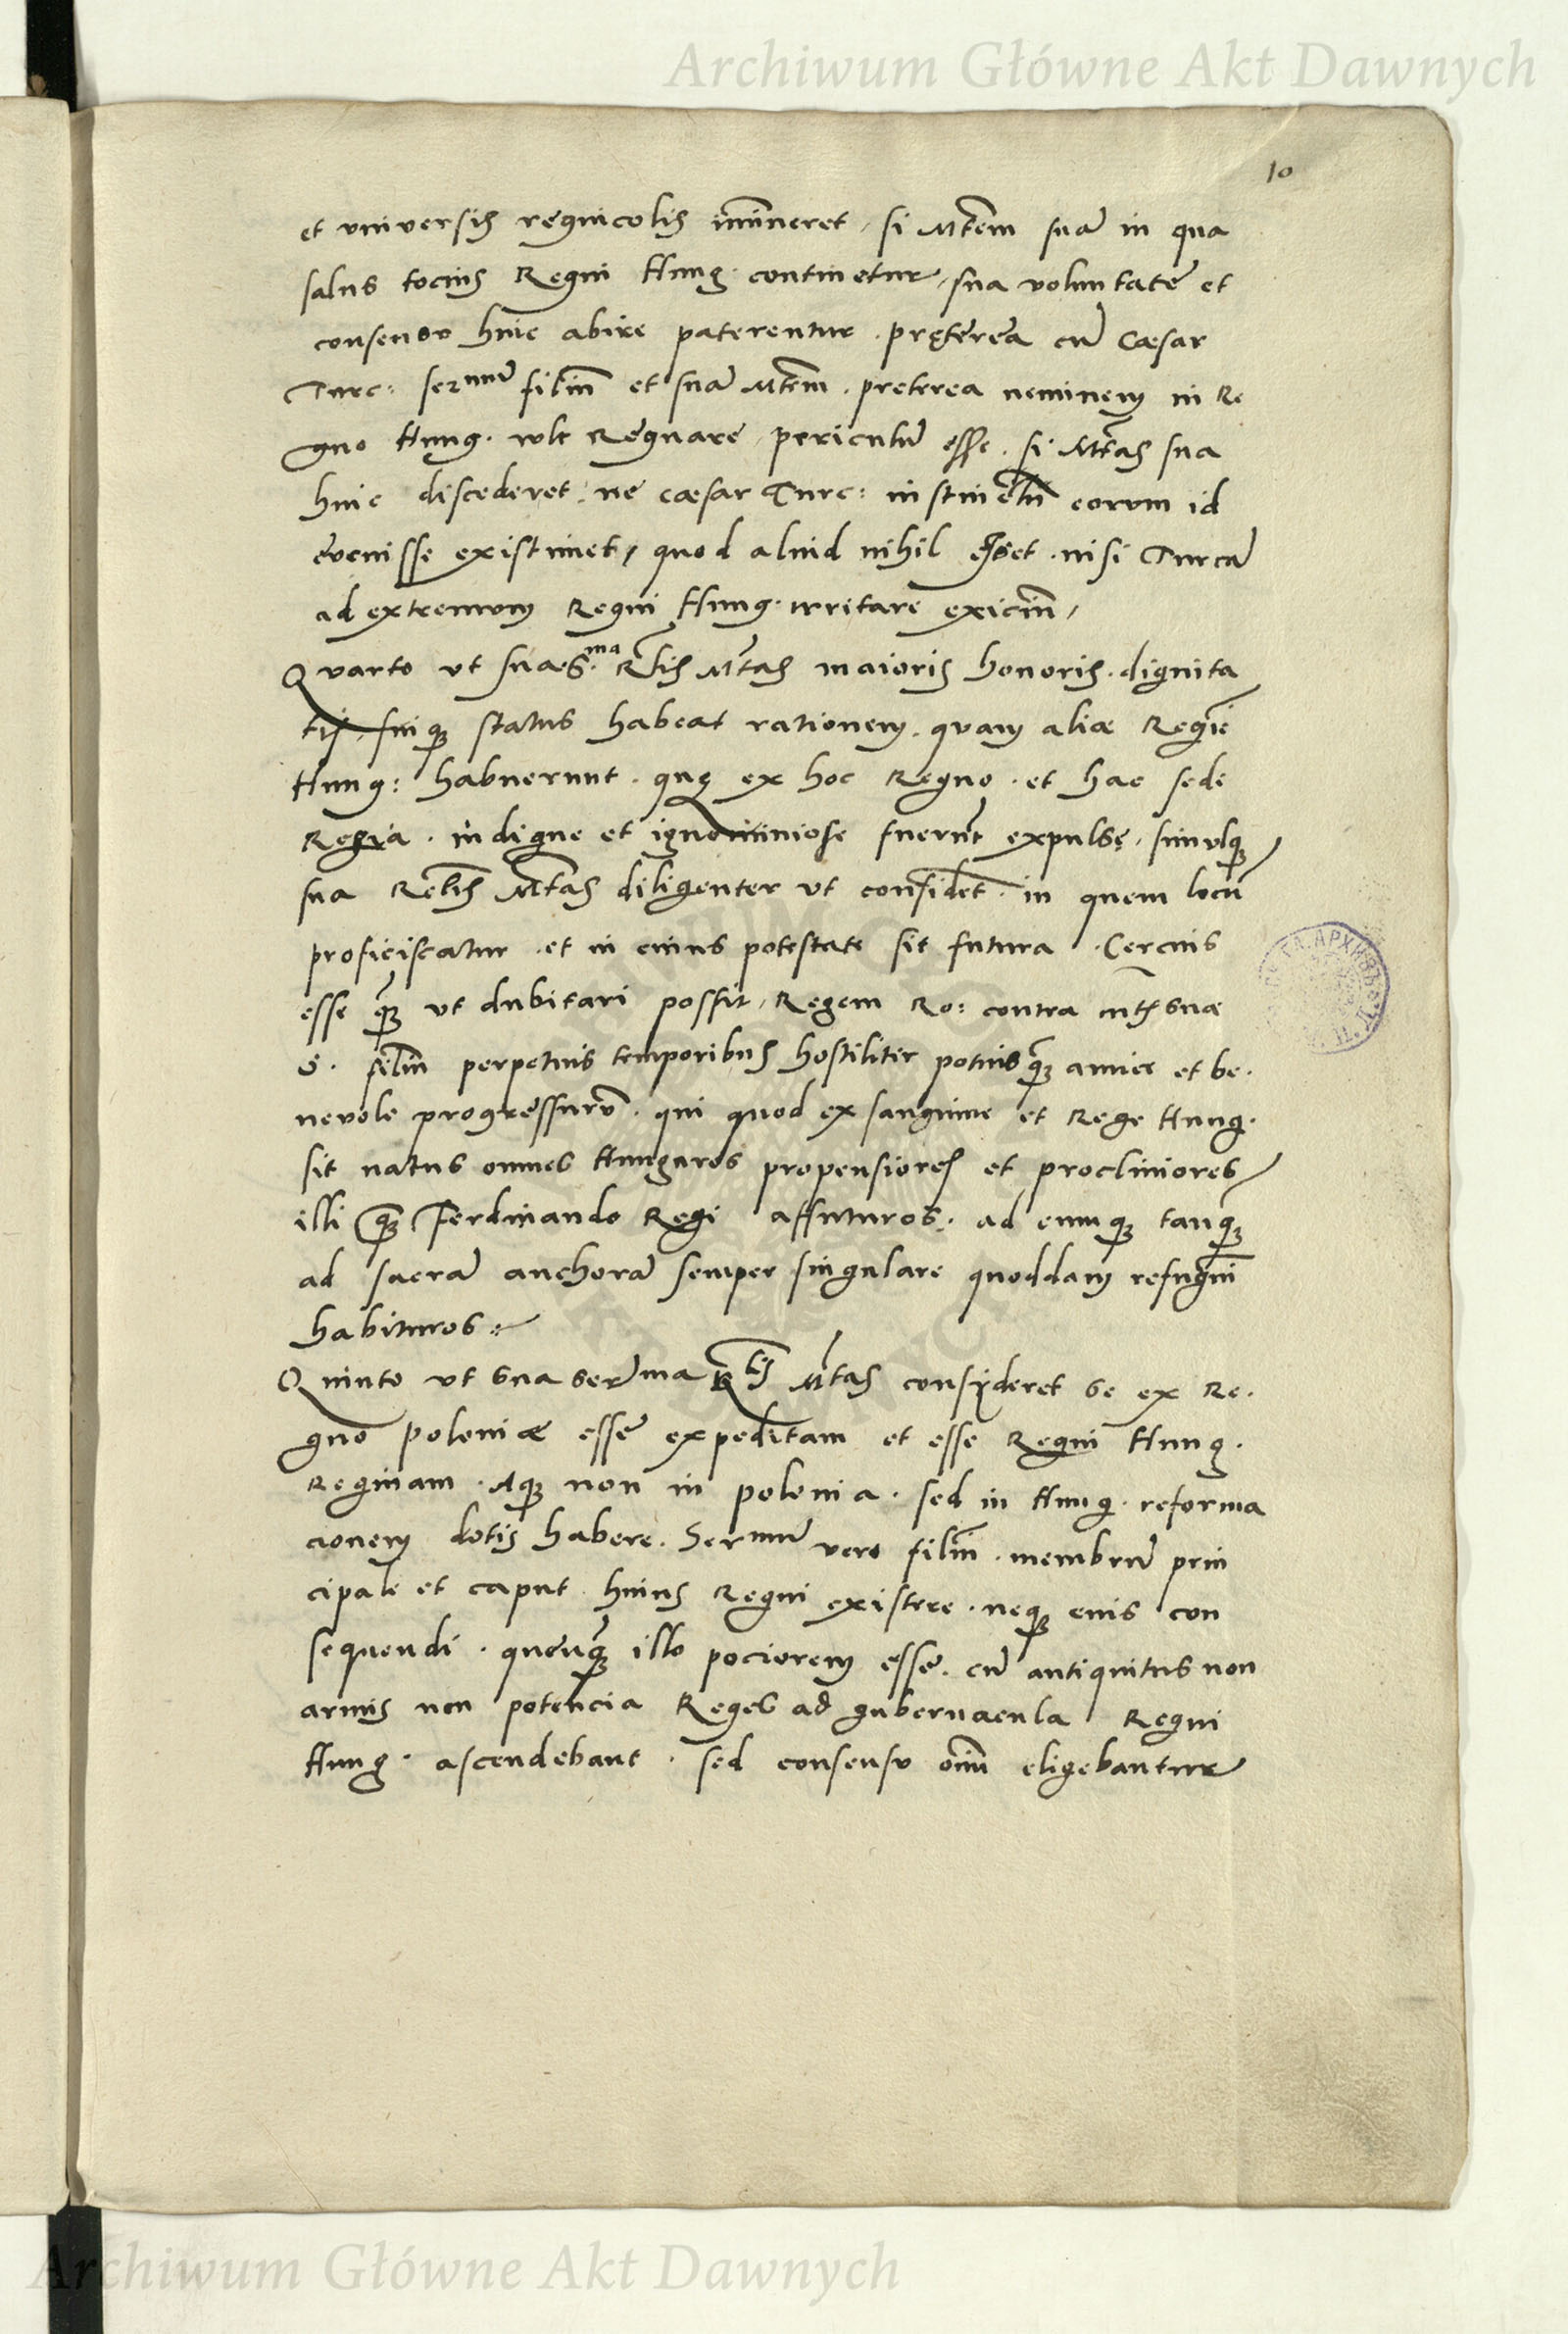 Archiwum Główne Akt Dawnych
10
et vniversis regnicolis im̄ineret, si Mtem̄ suā in qua
salus tocius Regni Hung. continetur, sua voluntate et
consensv hinc abire paterentur. pręterea cū Cæsar
Turc: sermū filiū et suā Mtem̄. preterea neminem in Re
gno Hung. vult Regnare, periculū esse. si Mtas sua
hinc discederet, ne cæsar Turc: instinctū eorvm id
evenisse existimet, quod aliud nihil esset. nisi Turcā
ad extremvm Regni Hung. irritare exiciū,
Qvarto vt sua S.ma Rēlis Mtas maioris honoris. dignita
tis, suiq; status habeat rationem. qvam aliæ Reginē
Hung: habuerunt. quę ex hoc Regno. et hac sede
Regia. indigne et ignominiose fuerūt expulsę. simulq;
sua Rēlis Mtas diligenter vt considēt. in quem locū
proficiscatur. et in cuius potestate sit futura. Cercius
esse q̄; vt dubitari possit, Regem Ro: contra mtis suæ
S. filiū perpetuis temporibus hostiliter potiusq̄; amice et be.
nevole progressurū. qui quod ex sanguine et Rege Hung.
sit natus omnes Hungaros propensiores et procliuiores
illi q̄; Ferdinando Regi affuturos. ad eumq; tanq̄;
ad sacrā anchorā semper singulare quoddam refugiū
habituros.
Quinto vt sua serma Rlis Mtas consyderet se ex Re.
gno Poloniæ esse expeditam et esse Regni Hung.
Reginam. Atq; non in polonia. sed in Hung. reforma
cionem dotis habere. Sermū vero filiū. membrū prin
cipale et caput huius Regni existere. neq; enis con
sequendi. quenq̄; illo pociorem esse. cū antiquitus non
armis non potencia Reges ad gubernacula Regni
Hung. ascendebant. sed consensv oīm eligebantur
Archiwum Główne Akt Dawnych